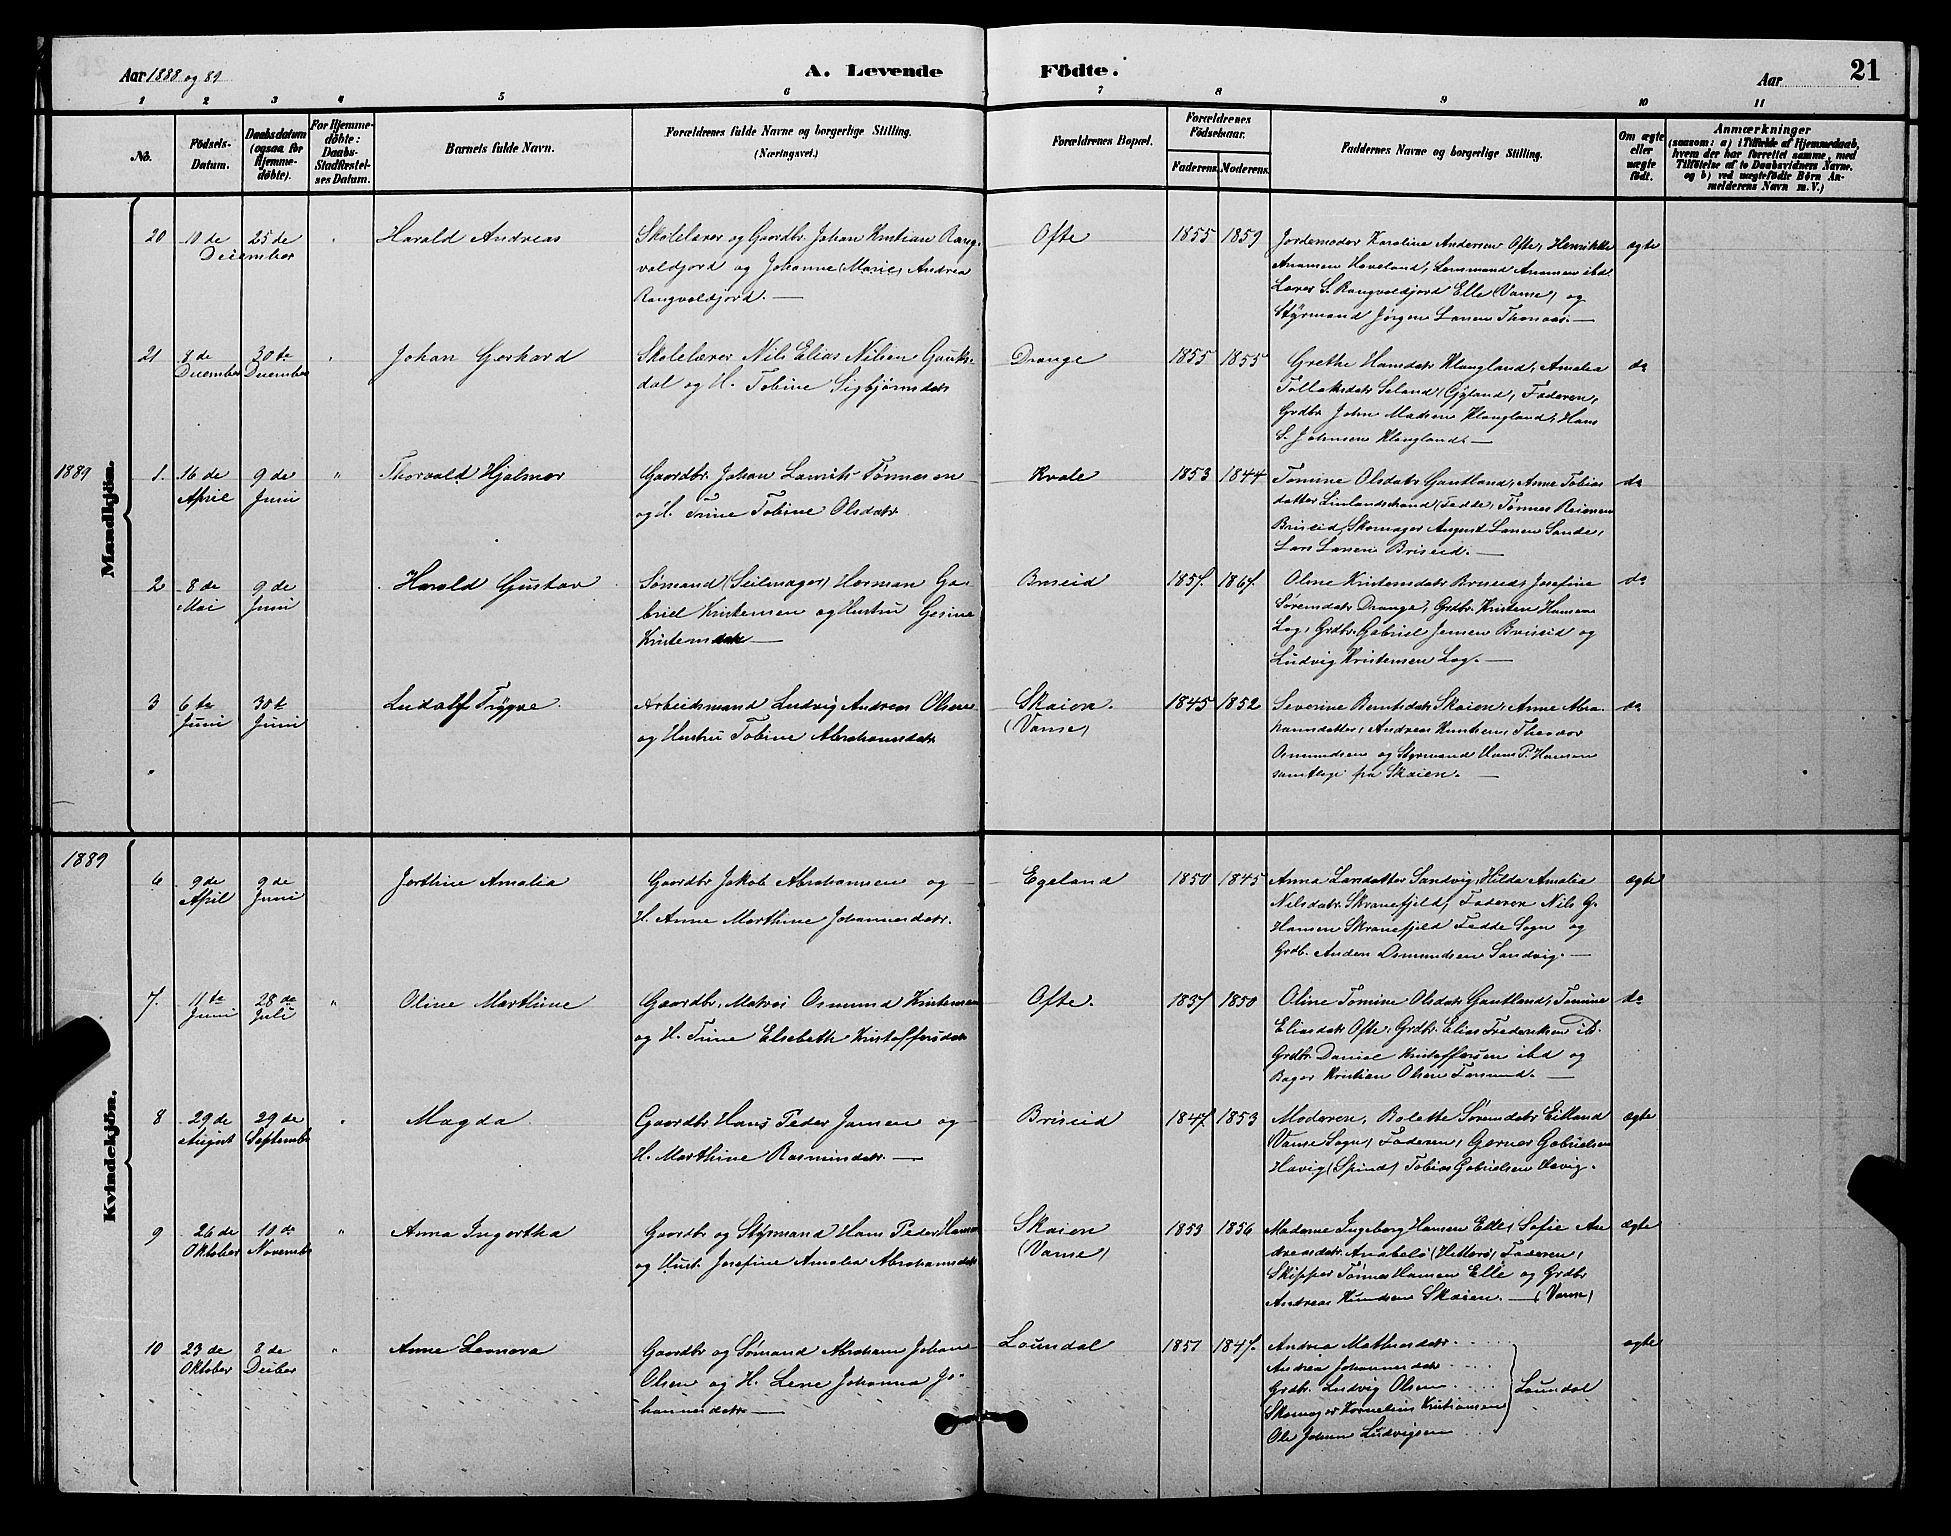 Aar 1888 og 89
A. Levende Födte.
Aar
21
1 2 3 4 5 6 7 8 9 10 11
No.
Födsels-Datum.
Daabsdatum (ogsaa for Hjemme-döbte).
For Hjemme-döbte: Daabs-Stadfæstel-ses Datum.
Barnets fulde Navn.
Forældrenes fulde Navne og borgerlige Stilling.
(Næringsvei.)
Forældrenes Bopæl.
Forældrenes Födselsaar.
Faderens. Moderens.
Faddernes Navne og borgerlige Stilling.
Om ægte eller uægte födt.
Anmærkninger
(saasom: a) i Tilfælde af Hjemmedaab,
hvem der har forrettet samme, med
Tilföielse af to Daabsvidners Navne.
og b) ved uægtefödte Börn An-
melderens Navn m. V.)
Mandkjön.
20 10de December 25de Harald Andreas
Skolelærer og Gaardbr. Johan Kristian Rang-
valdjord og Johanne Marie Andrea
Rangvaldjord. —
Ofte 1855 1859
Jordemoder Karoline Andersen Ofte, Henrikke
Anansen Haveland, Lensmand Anansen ibd
Lærer S. Rangvaldjord Elle (Vanse) og
Styrmand Jørgen Larsen Thonaas. —
ægte
21 8de December 30te December Johan Gerhard
Skolelærer Nils Elias Nilsen Gauks-
dal og H. Tobine Sigbjørnsdatr
Drange 1855 1855
Grethe Hansdatr Klungland, Amalia
Tollaksdatr Seland (Gyland), Faderen,
Grdbr John Madsen Klungland, Hans
S. Johnsen Klungland. —
do
1889
1. 16de April 9de Juni " Thorvald Hjalmar
Gaardbr. Johan Laurits Tønnesen
og H. Trine Tobine Olsdatr
Kvale 1853 1844
Tomine Olsdatr Gautland, Anne Tobias
datter Linlandstrand (Fedde), Tønnes Reiersen
Briseid, Skomager August Larsen Sande,
Lars Larsen Briseid. —
do
2 8de Mai 9de Juni Harald Gustav
Sømand (Seilmager) Herman Ga-
briel Kristensen og Hustru Gesine
Kristensdatr —
Briseid 1857. 1867.
Oline Kristensdatr Briseid, Josefine
Sørensdatr Drange, Grdbr. Kristen Hansen
Log, Grdbr. Gabriel Jensen Briseid og
Ludvig Kristensen Log. —
do
3 6te Juni 30te Juni Ludolf Trygve.
Arbeidsmand Ludvig Andreas Olsen
og Hustru Tobine Abrahamsdatr
Skaien (Vanse) 1845 1852
Severine Berntsdatr Skaien, Anne Abra-
hamsdatter, Andreas Knutsen, Theodor
Osmundsen og Styrmand Hans P. Hansen
samtlige fra Skaien. —
do
Kvindekjön.
1889
6 9de April 9de Juni Jorthine Amalia
Gaardbr Jakob Abrahamsen og
H. Anne Marthine Johannesdatr.
Egeland 1850 1845
Anna Larsdatter Sandvig, Hilda Amalia
Nilsdatr. Skranefjeld, Faderen Nils G.
Hansen Skranefjeld Fedde Sogn og
Grdb. Anders Osmundsen Sandvig. —
ægte
7. 11te Juni 28de Juli " Oline Marthine
Gaardbr. Matros Osmund Kristensen
og H. Trine Elsebeth Kristoffersdatr
Ofte. 1837 1850
Oline Tomine Olsdatr Gautland, Tomine
Eliasdatr Ofte, Grdbr. Elias Frederiksen ib.
Grdbr. Daniel Kristoffersen ibd og
Bager Kristian Olsen Farsund. —
do
8 29de August 29de Septembr Magda
Gaardbr Hans Peder Jansen og
H. Marthine Rasmusdatr. —
Briseid 1847 1853
Moderen, Bolette Sørensdatr Eitland
Vanse Sogn, Faderen, Gerner Gabrielsen
Havig (Spind) Tobias Gabrielsen Havig.
ægte
9 26de Oktober 10de Novembr " Anna Ingertha
Gaardbr og Styrmand Hans Peder Hansen
og Hust. Josefine Amalia Abrahamsdatr
Skaien (Vanse) 1853 1856
Madame Ingeborg Hansen Elle, Sofie An-
dreasdatr. Anabelø (Hitterø) Faderen,
Skipper Tønnes Hansen Elle og Grdbr
Andreas Knudsen Skaien. — (Vanse)
ægte
10 23de Oktober 8de Decbr " Anne Leonora
Gaardbr og Sømand Abraham Johan
Olsen og H. Lene Johanna Jo-
hannesdatr —
Laundal 1851 1847.
Andrea Mathiasdatr.
Andrea Johannesdatr
Grdbr. Ludvig Olsen
Skomager Kornelius Kristiansen
Ole Johan Ludvigsen
Laundal
ægte